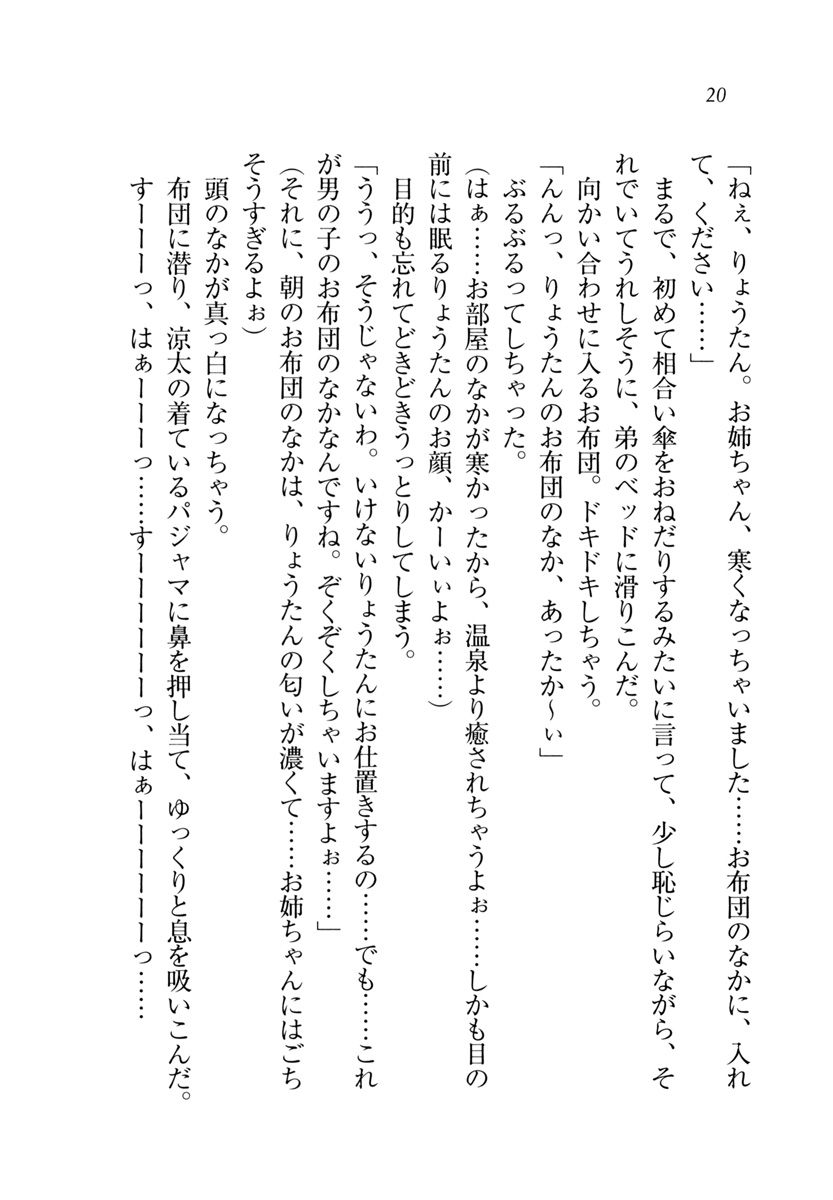 20
「ねぇ、りょうたん。お姉ちゃん、寒くなっちゃいました……お布団のなかに、入れ
て、ください……」
まるで、初めて相合い傘をおねだりするみたいに言って、少し恥じらいながら、そ
れでいてうれしそうに、弟のベッドに滑りこんだ。
向かい合わせに入るお布団。ドキドキしちゃう。
「んんっ、りょうたんのお布団のなか、あったか～ぃ」
ぶるぶるってしちゃった。
(はぁ……お部屋のなかが寒かったから、温泉より癒されちゃうよぉ……しかも目の
前には眠るりょうたんのお顔、かーいぃよぉ……)
目的も忘れてどきどきうっとりしてしまう。
「ううっ、そうじゃないわ。いけないりょうたんにお仕置きするの……でも……これ
が男の子のお布団のなかなんですね。ぞくぞくしちゃいますよぉ……」
(それに、朝のお布団のなかは、りょうたんの匂いが濃くて……お姉ちゃんにはごち
そうすぎるよぉ)
頭のなかが真っ白になっちゃう。
布団に潜り、涼太の着ているパジャマに鼻を押し当て、ゆっくりと息を吸いこんだ。
すーーーっ、はぁーーーっ……すーーーーーーっ、はぁーーーーーーっ……